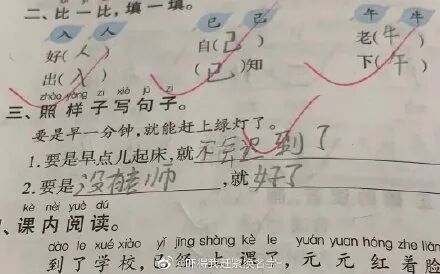 二、比一比，填一填。
入 人 已 己 午 牛
好(人) 自(己) 老(牛)
出(入) (已)知 下(午)
zhào yàng zi xiě jù zi
三、照样子写句子。
要是早一分钟，就能赶上绿灯了。
1.要是早点儿起床，就不会迟到了
2.要是没有帅，就好了
kè nèi yuè dú
、课内阅读。
dào le xué xiào yǐ jīng shàng kè le yuán yuan hóng zhe liǎn
到了学校，已经上课了，元元红着脸